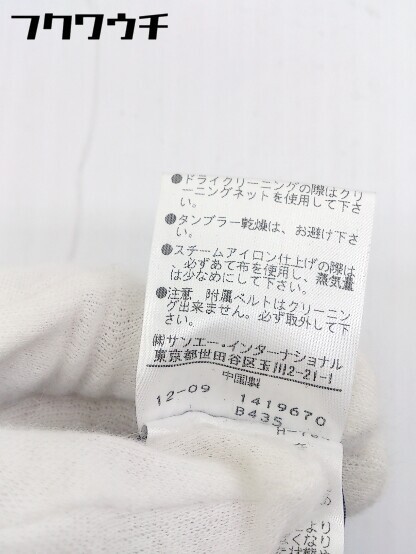 フクワウチ
●ドライクリーニングの際はクリ
ーニングネットを使用して下さ
い。
●タンブラー乾燥は、お避け下さ
い。
●スチームアイロン仕上げの際は
必ずあて布を使用し、蒸気量
は少なめにして下さい。
●注意 附属ベルトはクリーニン
グ出来ません。必ず取外して下
さい。
㈱サンエー・インターナショナル
東京都世田谷区玉川2-21-1
中国製
12-09 1419670
B435
より
くなり